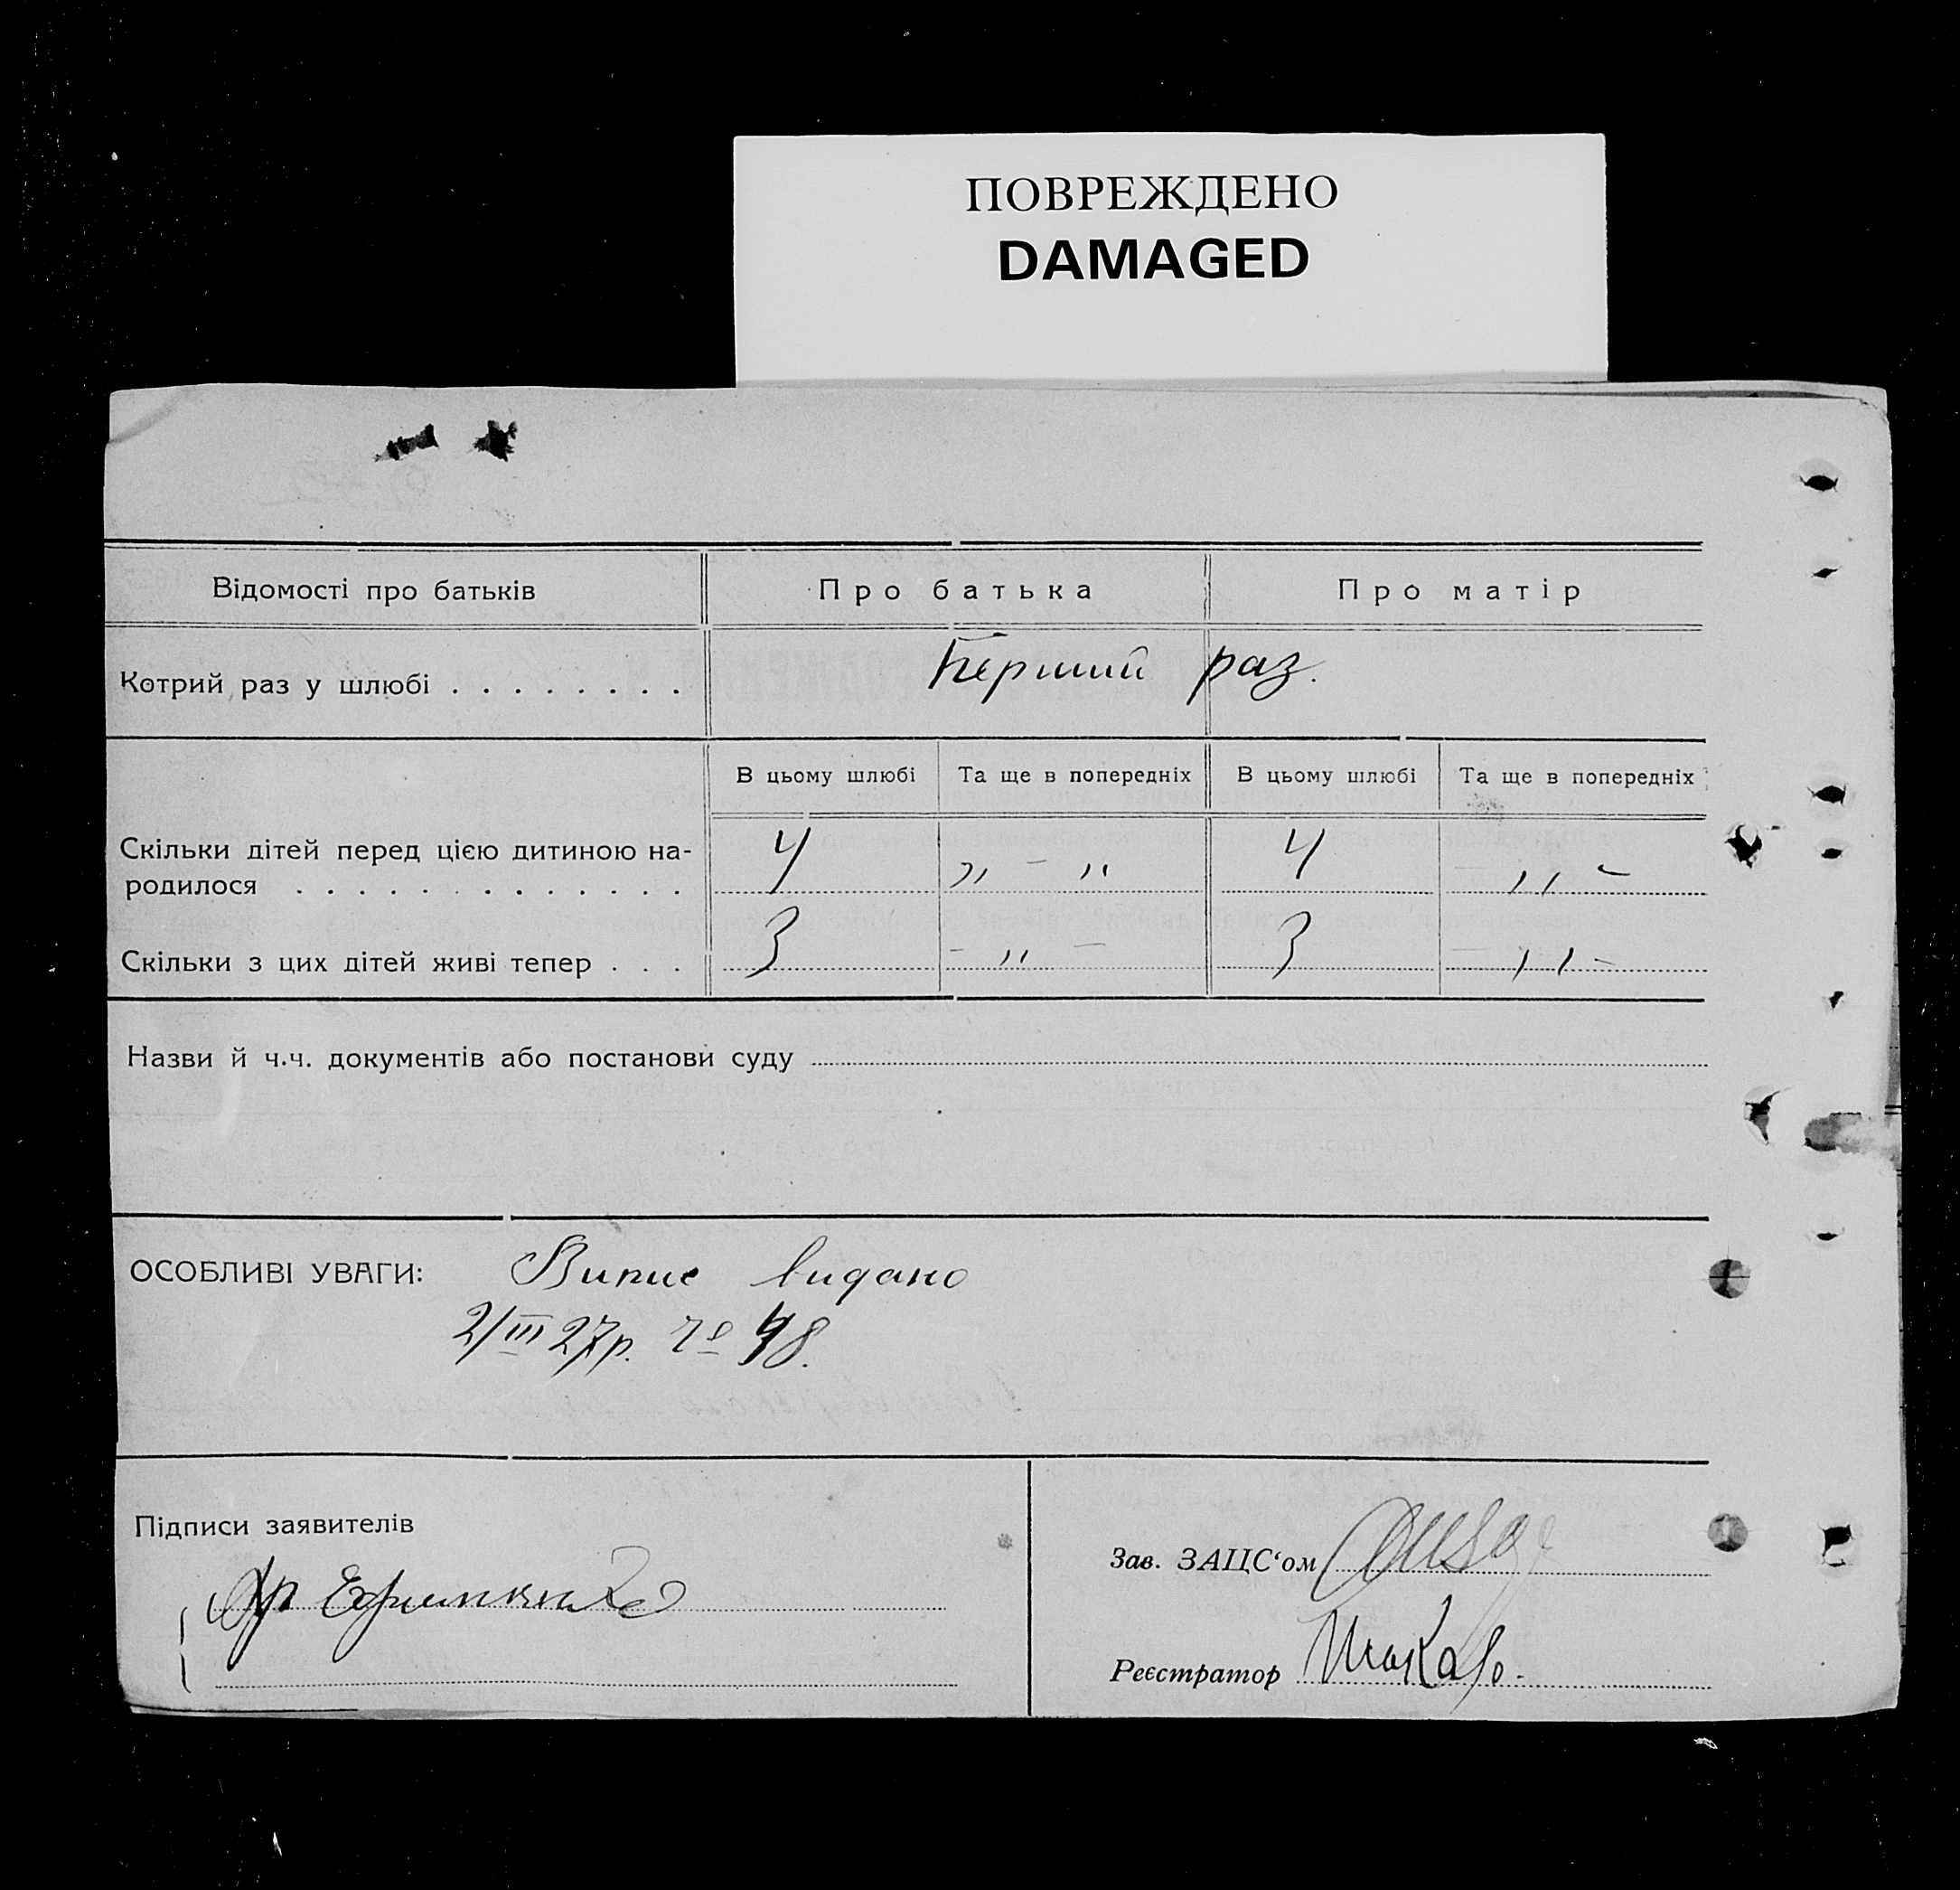 ПОВРЕЖДЕНО
DAMAGED
Відомості про батьків
Про батька
Про матір
Котрий раз у шлюбі
Перший раз.
В цьому шлюбі
Та ще в попередніх
В цьому шлюбі
Та ще в попередніх
Скільки дітей перед цією дитиною на-
родилося
4 „ – „ 4 – „ –
Скільки з цих дітей живі тепер . . . 3 – „ – 3 – „ –
Назви й ч.ч. документів або постанови суду
ОСОБЛИВІ УВАГИ: Випис видано
2/III 27р. 48.
Підписи заявителів
Зав. ЗАЦС‘ом
Реєстратор